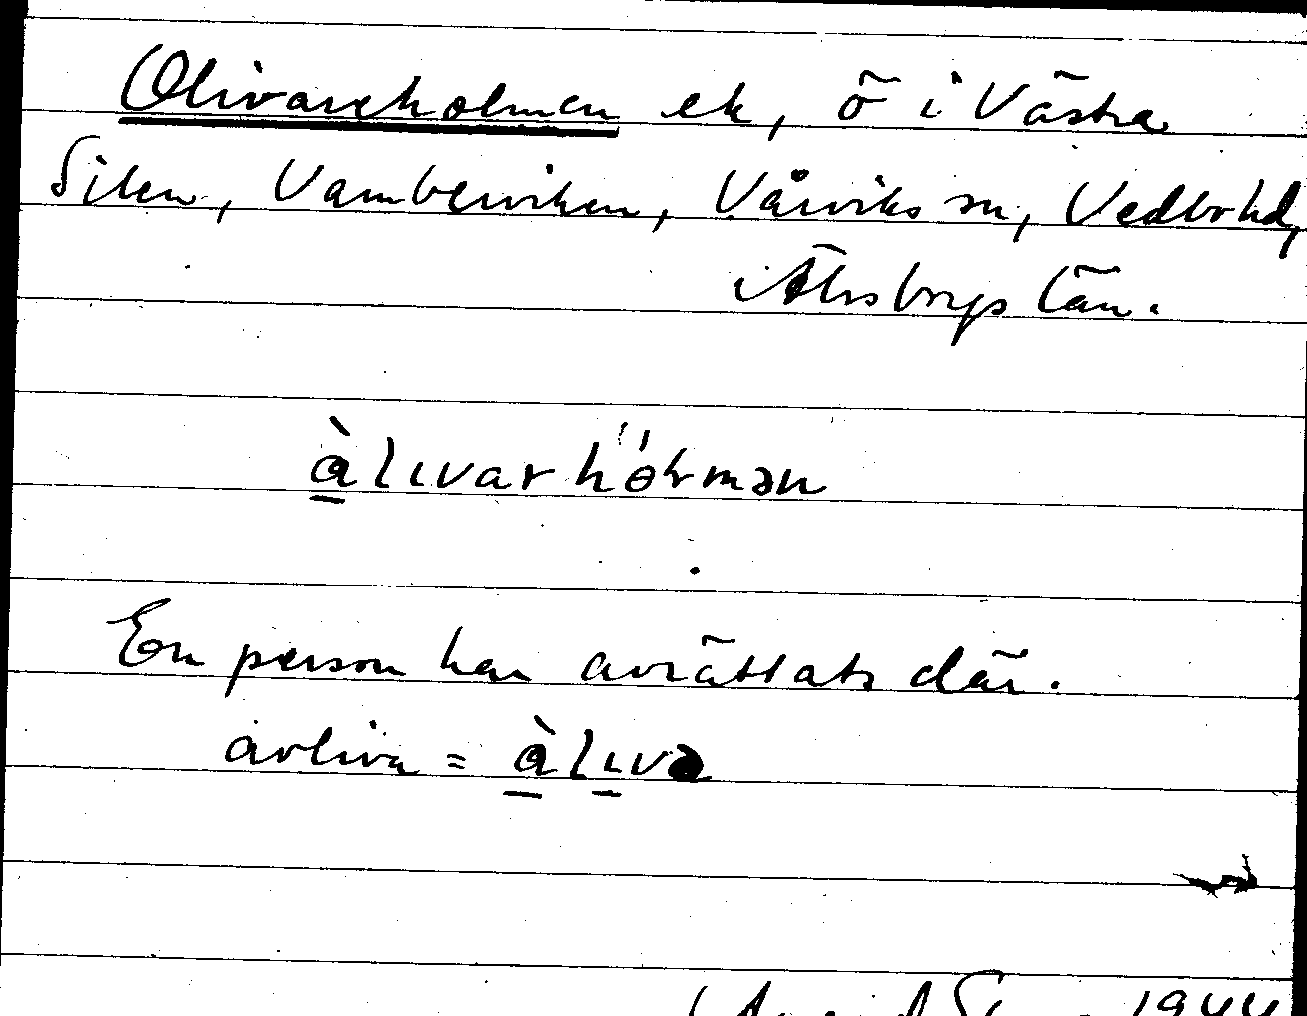 Olivareholmen ek, ö i Västra
Silen, Vamberviken, Vårviks sn, Vedbo hd,
Älvsborgs län.
àlıvarhólmən
En person har avrättats där.
avliva = àlıva
1944